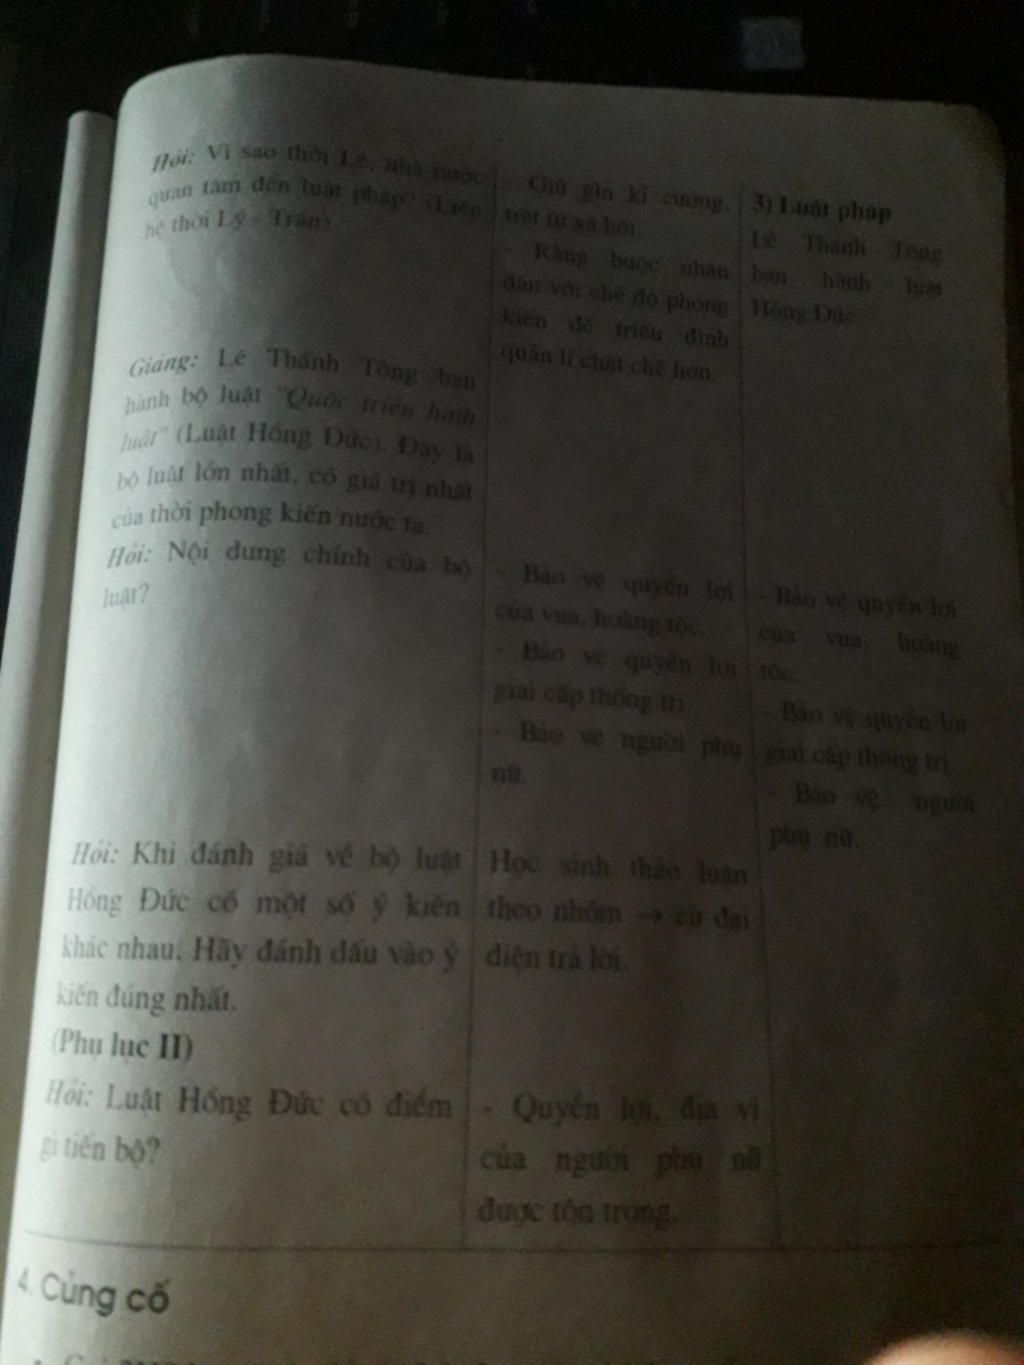 Hỏi: Vì sao thời Lê, nhà nước
quan tâm đến luật pháp? (Liên
hệ thời Lý - Trần)
Giảng: Lê Thánh Tông ban
hành bộ luật "Quốc triều hình
luật" (Luật Hồng Đức). Đây là
bộ luật lớn nhất, có giá trị nhất
của thời phong kiến nước ta.
Hỏi: Nội dung chính của bộ
luật?
Hỏi: Khi đánh giá về bộ luật
Hồng Đức có một số ý kiến
khác nhau. Hãy đánh dấu vào ý
kiến đúng nhất.
(Phụ lục II)
Hỏi: Luật Hồng Đức có điểm
gì tiến bộ?
- Giữ gìn kỉ cương,
trật tự xã hội.
- Ràng buộc nhân
dân với chế độ phong
kiến để triều đình
quản lí chặt chẽ hơn.
- Bảo vệ quyền lợi
của vua, hoàng tộc.
- Bảo vệ quyền lợi
giai cấp thống trị.
- Bảo vệ người phụ
nữ.
Học sinh thảo luận
theo nhóm → cử đại
diện trả lời.
- Quyền lợi, địa vị
của người phụ nữ
được tôn trọng.
3) Luật pháp
Lê Thánh Tông
ban hành luật
Hồng Đức
- Bảo vệ quyền lợi
của vua, hoàng
tộc.
- Bảo vệ quyền lợi
giai cấp thống trị.
- Bảo vệ người
phụ nữ.
4. Củng cố